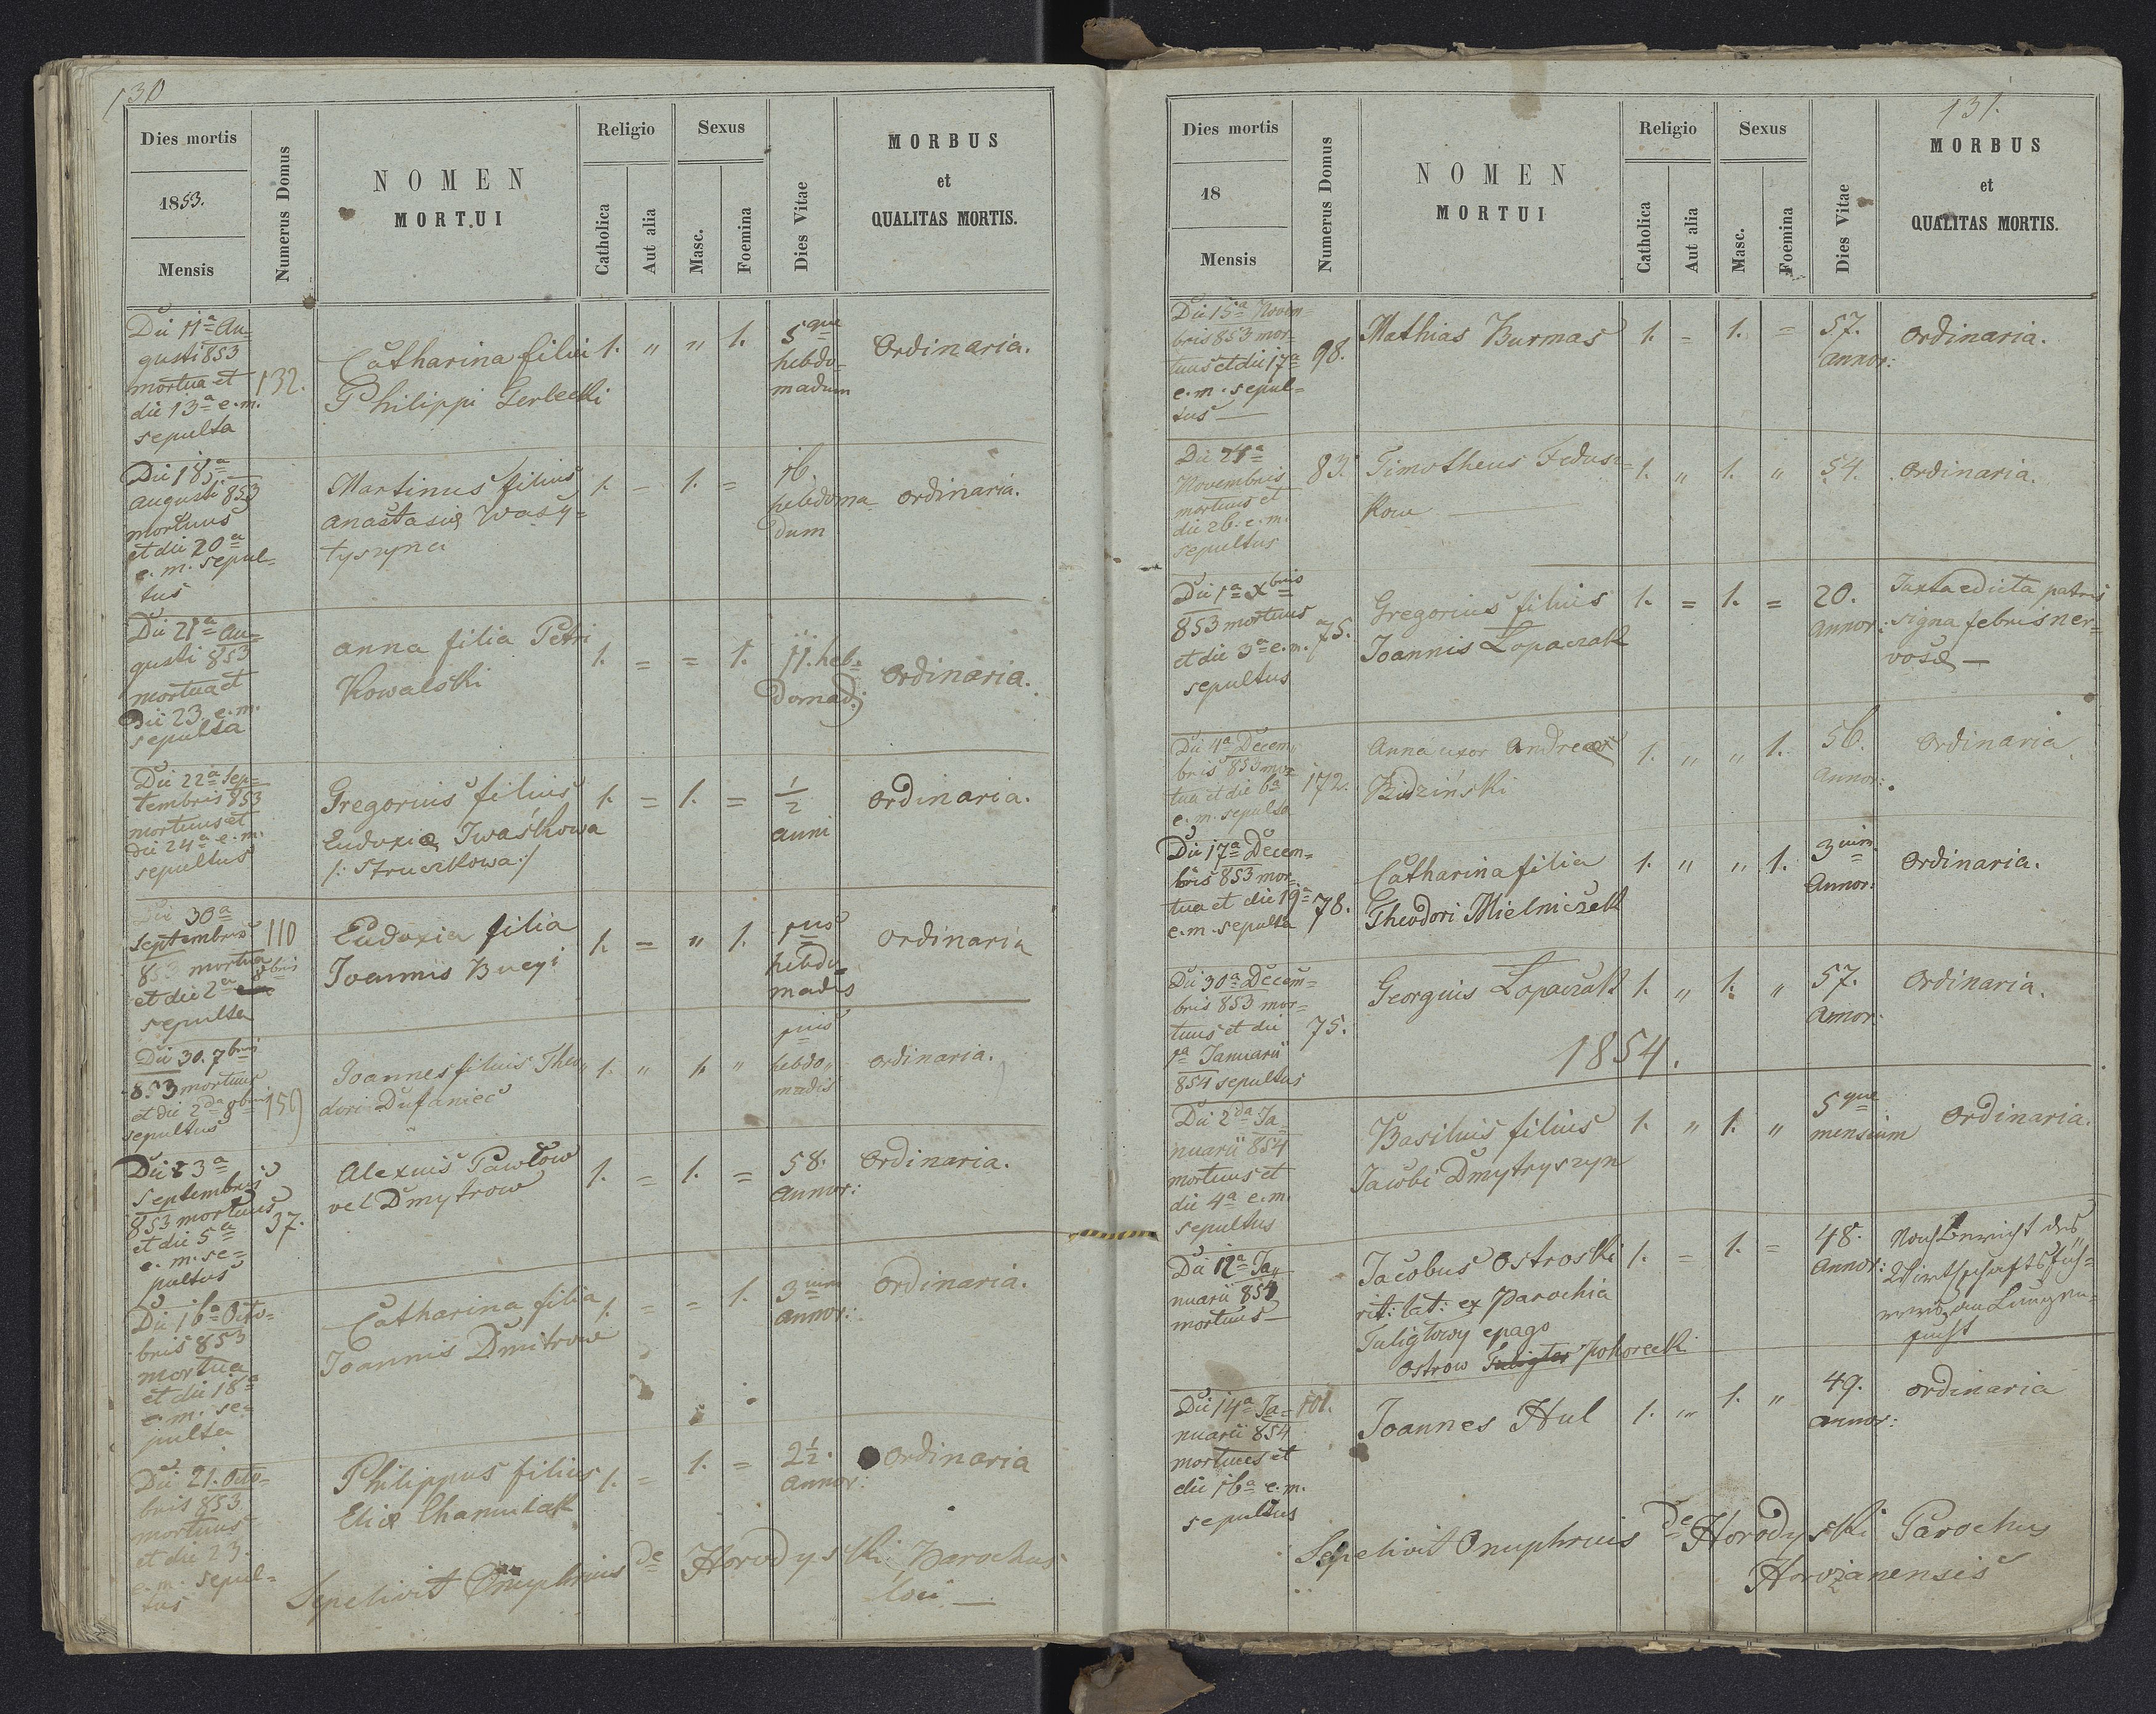 130
Dies mortis
1853.
Mensis
Numerus Domus
NOMEN
MORTUI
Religio
Catholica
Aut alia
Sexus
Masc.
Foemina
Dies Vitae
MORBUS
et
QUALITAS MORTIS.
Die 11a Au=
gusti 853
mortua et
die 13a e.m.
sepulta
132.
Catharina filia
Philippi Terlecki
1. " " 1.
5que
hebdo=
madum
Ordinaria.
Die 18a
augusti 853
mortuus
et die 20a
e. m. sepul=
tus
Martinus filius
anastasiæ Wasy=
tyszyna
1. - 1. =
16.
hebdoma
dum
ordinaria.
Die 21a Au=
gusti 853
mortua et
Die 23 e.m.
sepulta
anna filia Petri
Kowalski
1. = = 1.
11. heb=
domad:
ordinaria.
Die 22a Sep=
tembris 853
mortuus et
die 24a e.m.
sepultus
Gregorius filius
Eudoxiæ Iwaśkowa
/: Struczkowa :/
1. = 1. =
1/2
anni
ordinaria.
Die 30a
Septembris
853 mortua
et die 2a 8bris
sepulta
110
Eudoxia filia
Joannis Bucyi
1. = " 1.
1us
hebdo=
madis
ordinaria
Die 30. 7bris
853 mortuus
et die 2da 8bris
sepultus
159
Joannes filius Theo"
dori Dufaniec
1. " 1. "
1us
hebdo"
madis
ordinaria.
Die 3a
Septembris
853 mortuus
et die 5a
e. m. se=
pultus
37.
Alexius Pawłow
vel Dmytrow
1. = 1. =
58.
annor:
Ordinaria.
Die 16a Octo=
bris 853
mortua
et die 18a
e. m. se=
pulta
Catharina filia
Joannis Dmitrow
1. = = 1.
3um
annor:
Ordinaria.
Die 21. Octo=
bris 853
mortuus
et die 23.
e. m. sepul=
tus
Philippus filius
Eliæ Chamulak
1. = 1. =
2 1/2.
annor:
Ordinaria
Sepelivit Onuphrius de Horodyski Parochus
loci —
131.
Dies mortis
18
Mensis
Numerus Domus
NOMEN
MORTUI
Religio
Catholica
Aut alia
Sexus
Masc.
Foemina
Dies Vitae
MORBUS
et
QUALITAS MORTIS.
Die 15a Novem=
bris 853 mor=
tuus et die 17a
e.m. sepul=
tus —
98.
Mathias Burmas
1. = 1. =
57.
annor:
ordinaria.
Die 24a
Novembris
mortuus et
die 26. e.m.
sepultus
83.
Timotheus Fedusz=
kow —
1. " 1. "
54.
ordinaria.
Die 1a Xbris
853 mortuus
et die 3a e.m.
sepultus
75.
Gregorius filius
Joannis Lopaczak
1. = 1. =
20.
annor:
Iuxta edicta patris
signa febris ner=
vosæ —
Die 4a Decem"
bris 853 mor
tua et die 6a
e. m. sepulta
172.
Anna uxor Andreæ
Budziński
1. " " 1.
56.
annor:
ordinaria
Die 17a Decem=
bris 853 mor=
tua et die 19a
e.m. sepulta
78.
Catharina filia
Theodori Mielniczek
1. " " 1.
3um
Annor:
ordinaria.
Die 30a Decem=
bris 853 mor=
tuus et die
1a Januarii
854 sepultus
75.
Georgius Lopaczak
1. " 1. "
57.
annor.
ordinaria.
1854.
Die 2da Ja=
nuarii 854
mortuus et
die 4a e.m.
sepultus
Basilius filius
Jacobi Dmytryszyn
1. " 1. "
5que
mensium
ordinaria.
Die 12a Ja"
nuarii 854
mortuus —
Jacobus Ostroski
rit: lat: ex Parochia
Tuligłowy e pago
Ostrow Tuligłow Pohorecki
1. = 1. =
48.
annor:
Nach Bericht des
Wirthschafts füh=
rers an Lungen
sucht
Die 14a Ja=
nuarii 854
mortuus et
die 16a e.m.
sepultus
101.
Joannes Hul
1. " 1. "
49.
annor:
ordinaria
Sepelivit Onuphrius de Horodyski Parochus
Horożanensis